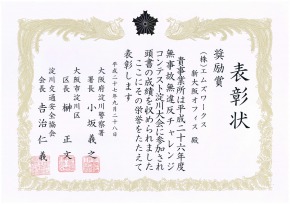 表彰状
奨励賞
(株)エムズワークス
新大阪オフィス 殿
貴事業所は平成二十六年度
無事故・無違反チャレンジ
コンテスト淀川大会に参加され
頭書の成績を収められました
ここにその栄誉をたたえて
表彰します
平成二十七年九月二十八日
大阪府淀川警察署
署長 小坂義之
大阪市淀川区
区長 榊正文
淀川交通安全協会
会長 吉治仁義